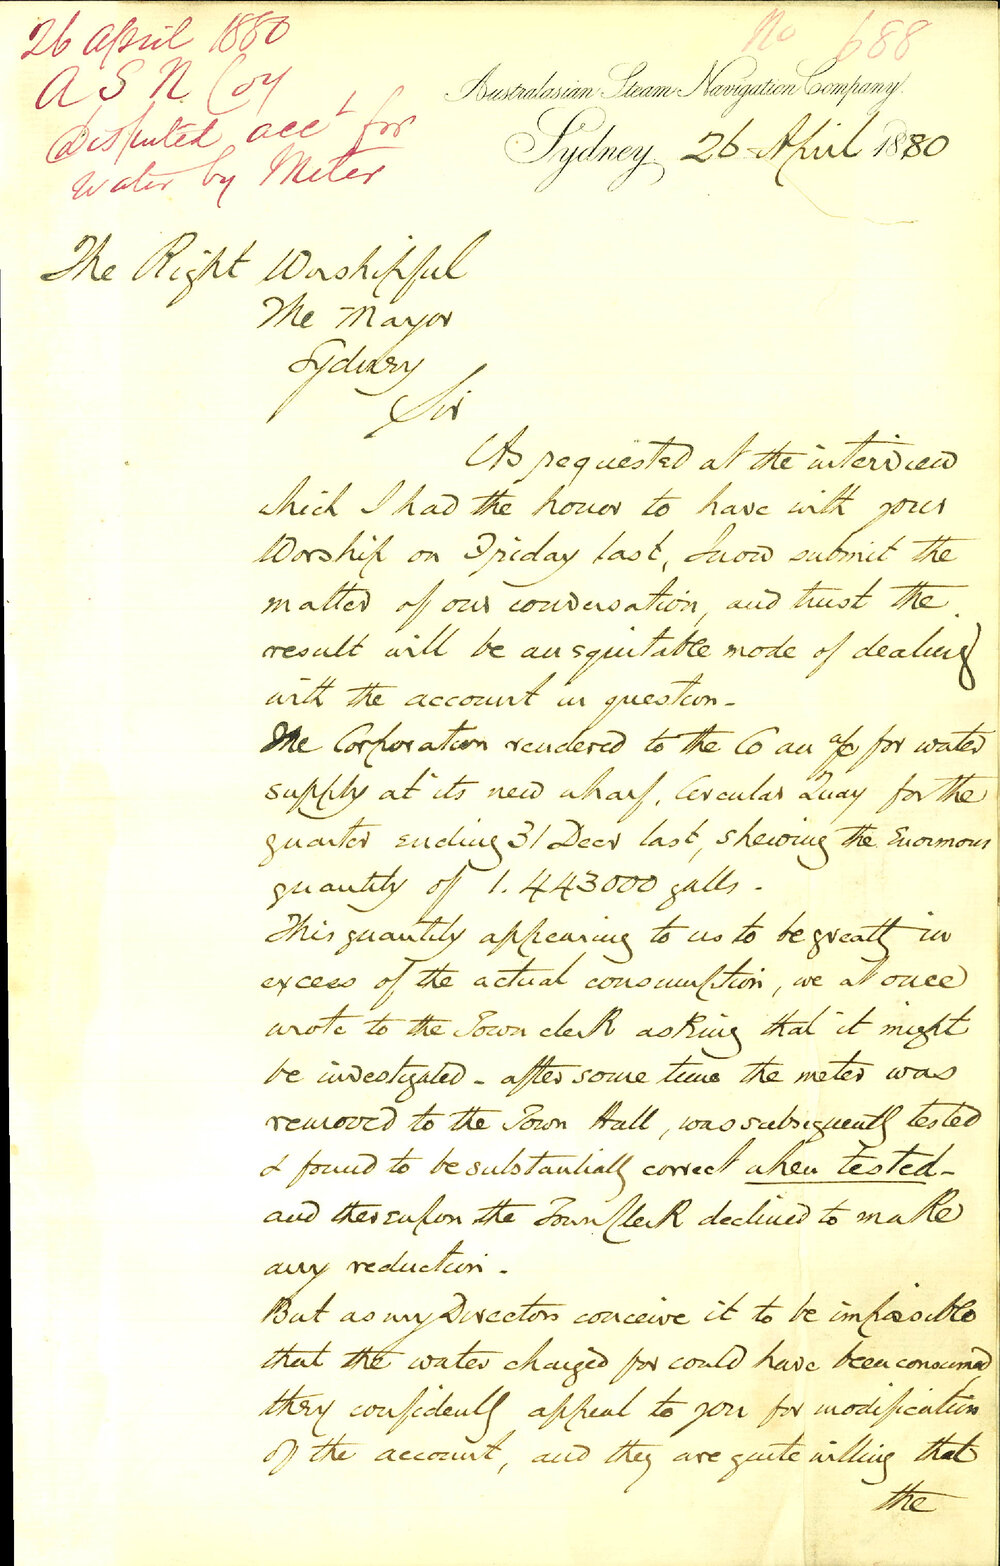 26 April 1880
A S N Coy
Disputed acct for
water by Meter
No 688
Australasian Steam Navigation Company.
Sydney 26 April 1880
The Right Worshipful
The Mayor
Sydney
Sir
As requested at the interview
which I had the honor to have with your
Worship on Friday last, I now submit the
matter of our conversation, and trust the
result will be an equitable mode of dealing
with the account in question -
The Corporation rendered to the Co an a/c for water
supply at its new wharf, Circular Quay for the
quarter ending 31 Decr last, shewing the Enormous
quantity of 1.443000 galls -
This quantity appearing to us to be greatly in
excess of the actual consumption, we at once
wrote to the Town clerk asking that it might
be investigated - after some time the meter was
removed to the Town Hall, was subsequently tested
& found to be substantially correct when tested -
and thereupon the Town Clerk declined to make
any reduction -
But as my Directors conceive it to be impossible
that the water charged for could have been consumed
they confidently appeal to you for modification
of the account, and they are quite willing that
the